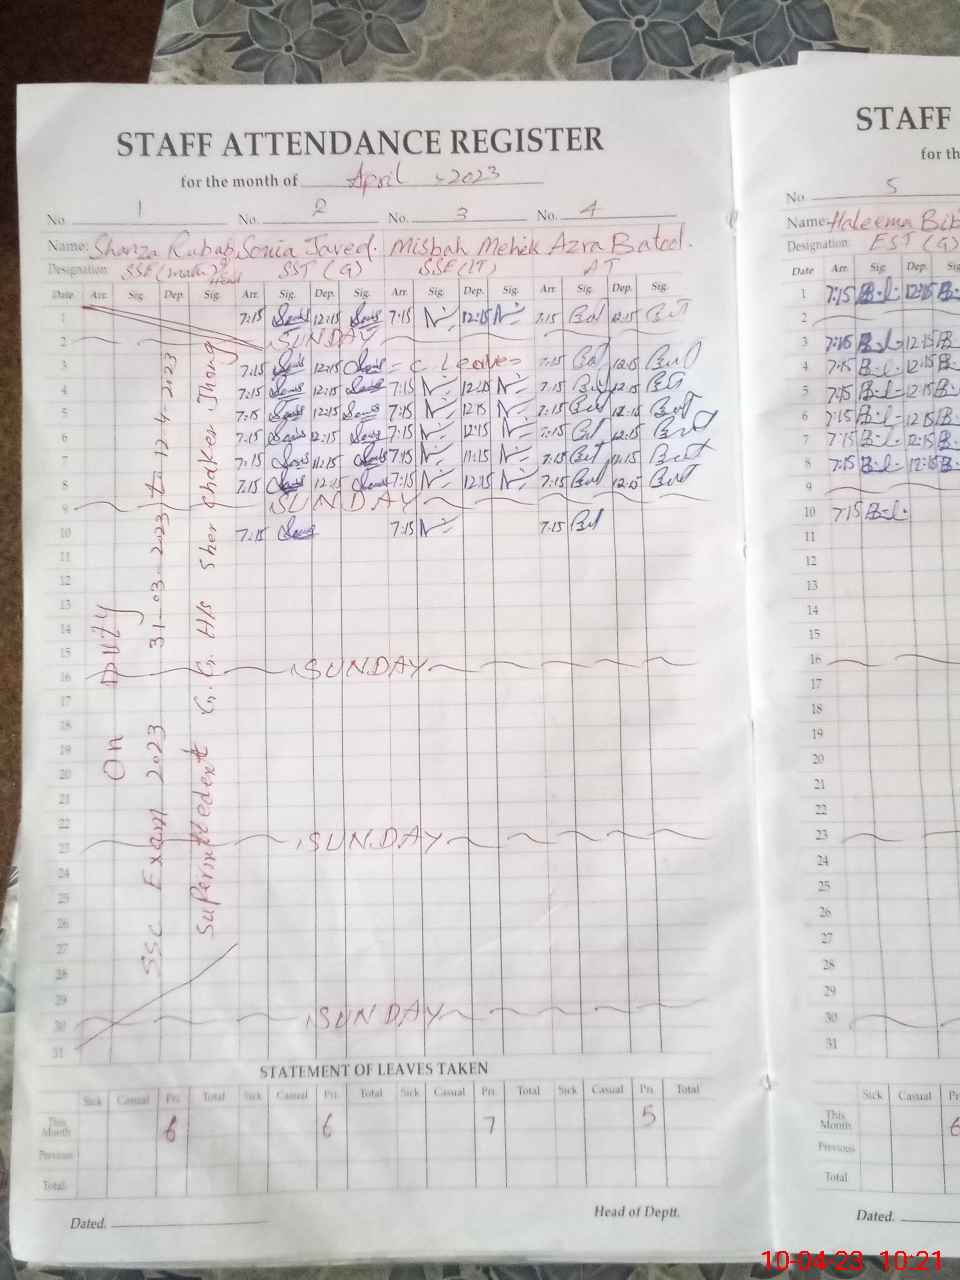 STAFF ATTENDANCE REGISTER
for the month of April 2023
No. 1 No. 2 No. 3 No. 4
Name: Shanza Rubab Sonia Javed. Misbah Mehek Azra Batool.
Designation: SSE (math) Head SST (G) SSE (IT) AT
Date Arr. Sig. Dep. Sig. Arr. Sig. Dep. Sig. Arr. Sig. Dep. Sig. Arr. Sig. Dep. Sig.
1 7:15 12:15 7:15 12:15 7:15 12:15
2 SUNDAY
3 7:15 12:15 C. Leave 7:15 12:15
4 7:15 12:15 7:15 12:15 7:15 12:15
5 7:15 12:15 7:15 12:15 7:15 12:15
6 7:15 12:15 7:15 12:15 7:15 12:15
7 7:15 11:15 7:15 11:15 7:15 11:15
8 7:15 12:15 7:15 12:15 7:15 12:15
9 SUNDAY
10 7:15 7:15 7:15
11
12
13
14
15
16 SUNDAY
17
18
19
20
21
22
23 SUNDAY
24
25
26
27
28
29
30 SUNDAY
31
On Duty
SSC Exam 2023 31-03-2023 to 12-4-2023
G. G. H/S Sher Chaker Jhang
STATEMENT OF LEAVES TAKEN
Sick Casual Pri. Total Sick Casual Pri. Total Sick Casual Pri. Total Sick Casual Pri. Total
This Month 6 6 7 5
Previous
Total
Dated. Head of Deptt.
STAFF
for th
No. 5
Name: Haleema Bib
Designation: EST (G)
Date Arr. Sig. Dep. Sig.
1 7:15 12:15
2
3 7:15 12:15
4 7:15 12:15
5 7:15 12:15
6 7:15 12:15
7 7:15 12:15
8 7:15 12:15
9
10 7:15
11
12
13
14
15
16
17
18
19
20
21
22
23
24
25
26
27
28
29
30
31
Sick Casual Pr
This Month 6
Previous
Total
Dated.
10-04-23 10:21